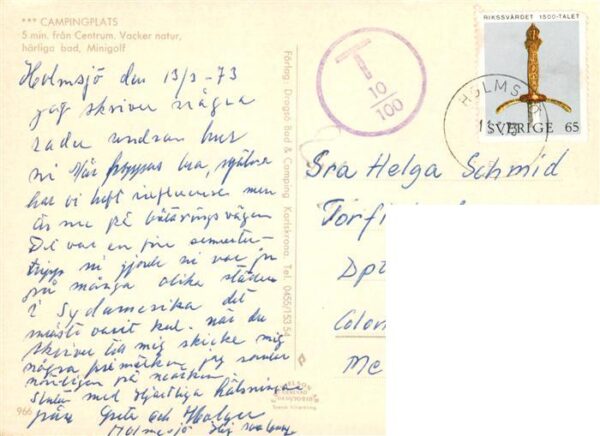 *** CAMPINGPLATS
5 min. från Centrum. Vacker natur,
härliga bad, Minigolf
Holmsjö den 13/3 -73
jag skriver några
rader undrar hur
ni mår hoppas bra, själva
har vi haft influensa men
är nu på bättringsvägen
Det var en fin semester-
tripp ni gjorde ni var ju
på många olika städer
i Sydamerika det
måste varit kul. när du
skriver till mig skicka mig
några frimärken jag samlar
nämligen på märken
Slutar med hjärtliga hälsningar
från Greta och Holger
Holmsjö
966
Förlag: Dragsö Bad & Camping Karlskrona. Tel. 0455/153 54
T
10
100
RIKSSVÄRDET 1500-TALET
SVERIGE 65
HOLMSJÖ
Sra Helga Schmid
Dpt
Colon